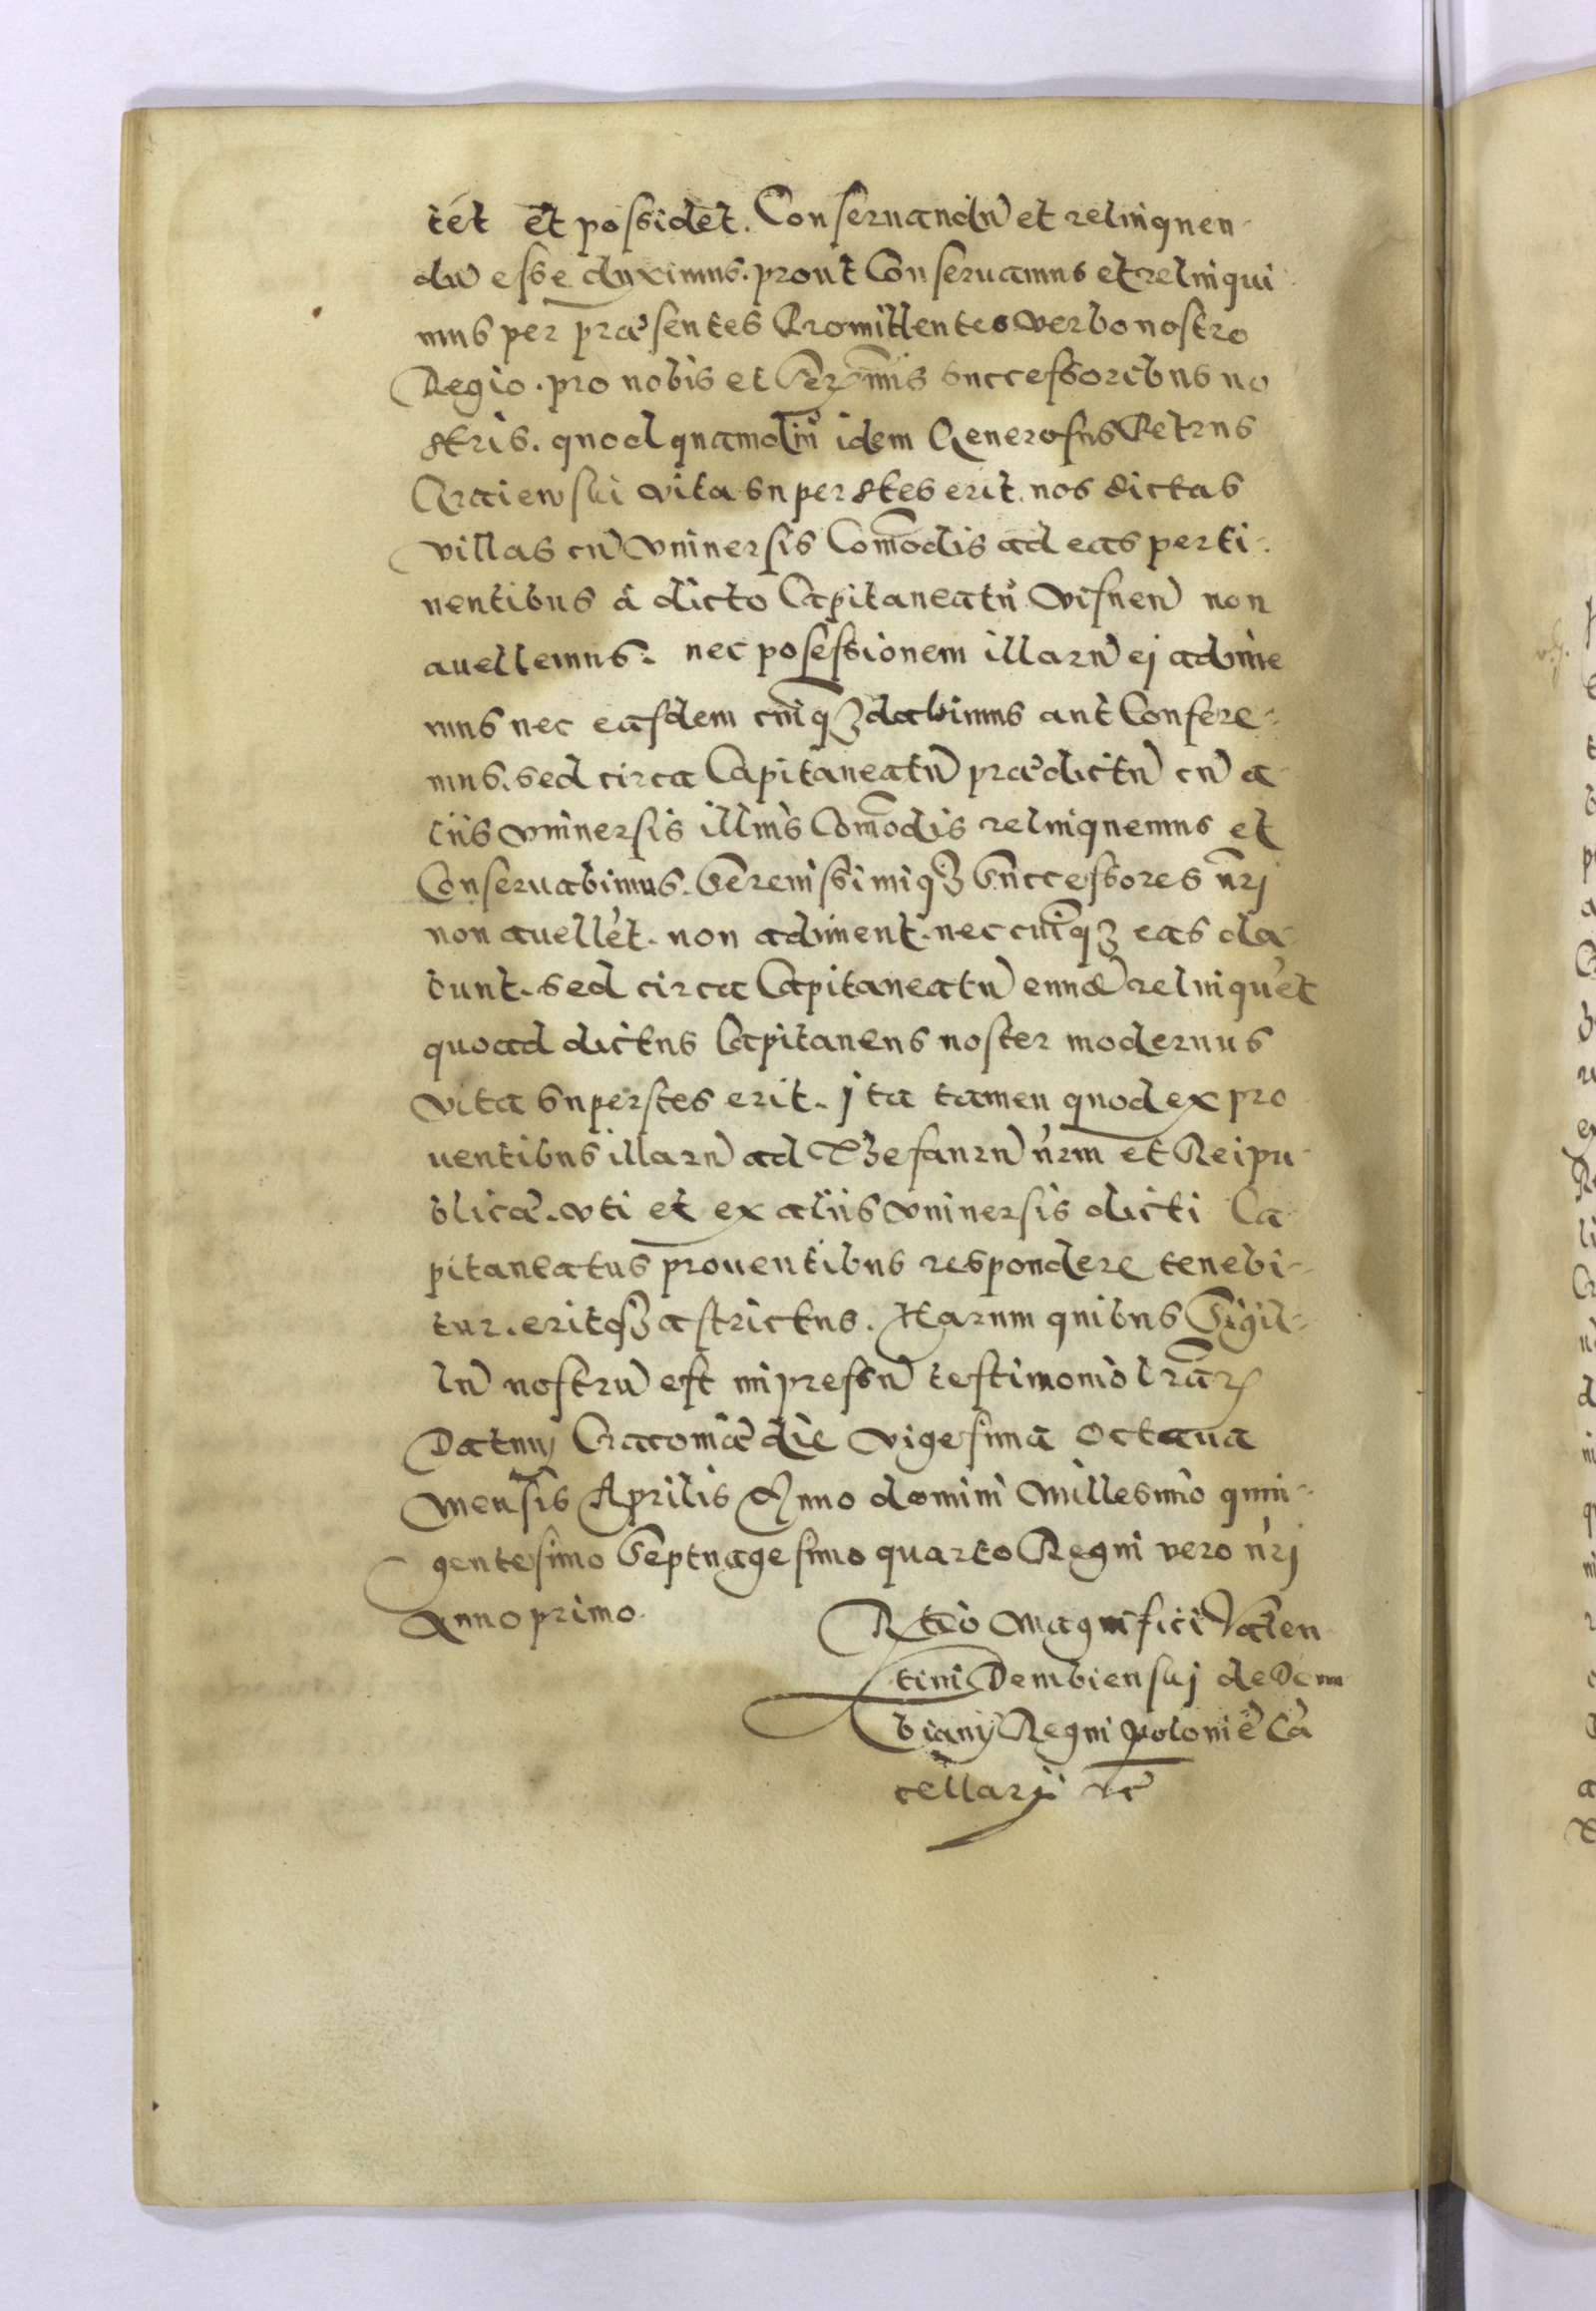 tēt et possidēt. Conseruandū et relinquen-
dū esse duximus. prout Conseruamus et relinqui
mus per præsentes Promittentes verbo nostro
Regio. pro nobis et Serenmis Successoribus no
stris. quod quamdiu idem Generosus Petrus
Craiewski vita superstes erit. nos dictas
villas cū vniuersis Com̄odis ad eas perti-
nentibus à dicto Capitaneatu Visnen̄ non
auellemus. nec posessionem illarū ej adime
mus nec easdem cuiq3 dabimus aut Confere-
mus. sed circa Capitaneatū prædictū cū a
liis vniuersis illius Com̄odis relinquemus et
Conseruabimus. Serenissimiq3 Successores nr̄j
non auellēt. non adiment. nec cuiq3 eas da
bunt. sed circa Capitaneatū eundē relinquēt
quoad dictus Capitaneus noster modernus
vita superstes erit. jta tamen quod ex pro
uentibus illarū ad Thesaurū nr̄m et Reipu-
blicæ. vti et ex aliis vniuersis dicti Ca
pitaneatus prouentibus respondere tenebi-
tur. eritq3 astrictus. Harum quibus Sigil-
lū nostrū est impressū testimonio lrār
Datum Cracouiæ die vigesima Octaua
mensis Aprilis Anno domini Millesimo quin-
gentesimo Septuagesimo quarto Regni vero nr̄j
Anno primo.
Rtio Magnifici Valen
tini Dembienskj de Dem
biany Regni poloniæ Cā
cellarij etc